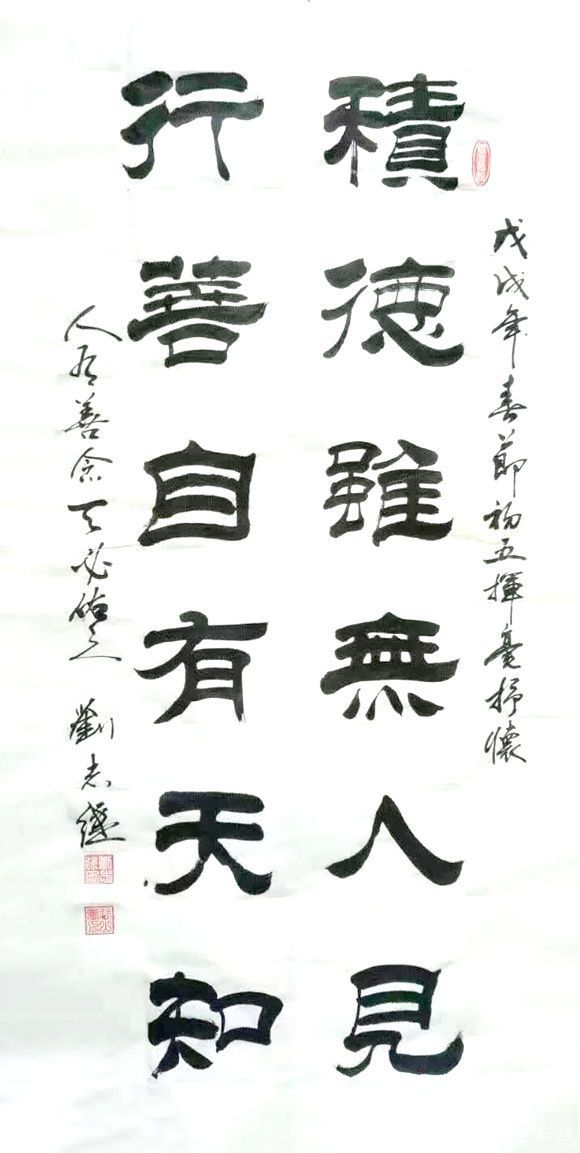 戊戌年春節初五揮毫抒懷
積德雖無人見
行善自有天知
人有善念天必佑之
劉志